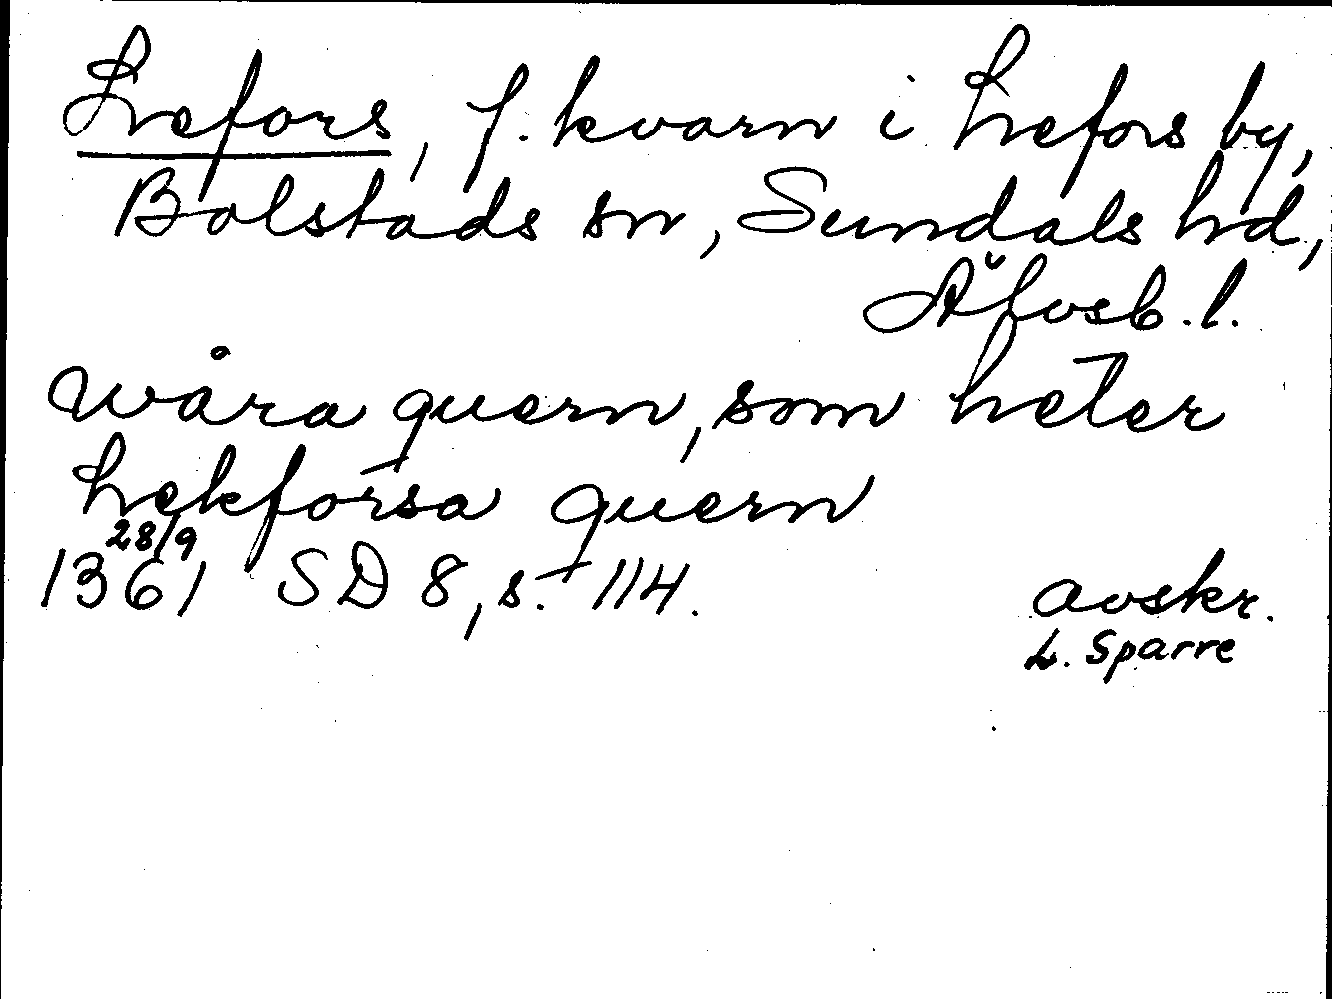 Hefors, f. kvarn i Hefors by,
Bolstads sn, Sundals hd,
Älvsb.l.
wåra quern, som heter
hekforsa quern
28/9
1361 SD 8, s. 114.
avskr.
L. Sparre